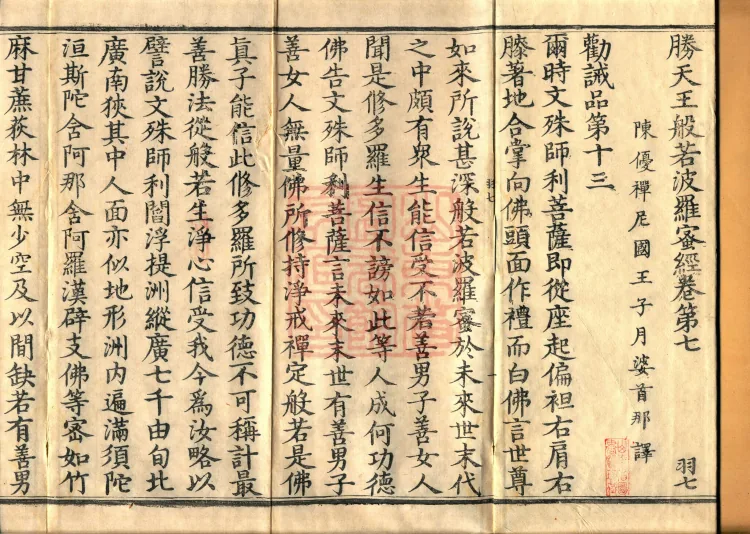 勝天王般若波羅蜜經卷第七 羽七
陳優禪尼國王子月婆首那譯
勸誡品第十三
爾時文殊師利菩薩即從座起偏袒右肩右
膝著地合掌向佛頭面作禮而白佛言世尊
如來所說甚深般若波羅蜜於未來世末代
羽七
之中頗有衆生能信受不若善男子善女人
聞是修多羅生信不謗如此等人成何功德
佛告文殊師利菩薩言未來末世有善男子
善女人無量佛所修持淨戒禪定般若是佛
眞子能信此修多羅所致功德不可稱計最
善勝法從般若生淨心信受我今爲汝略以
譬說文殊師利閻浮提洲縱廣七千由旬北
廣南狹其中人面亦似地形洲內遍滿須陀
洹斯陀含阿那含阿羅漢辟支佛等密如竹
麻甘蔗荻林中無少空及以間缺若有善男